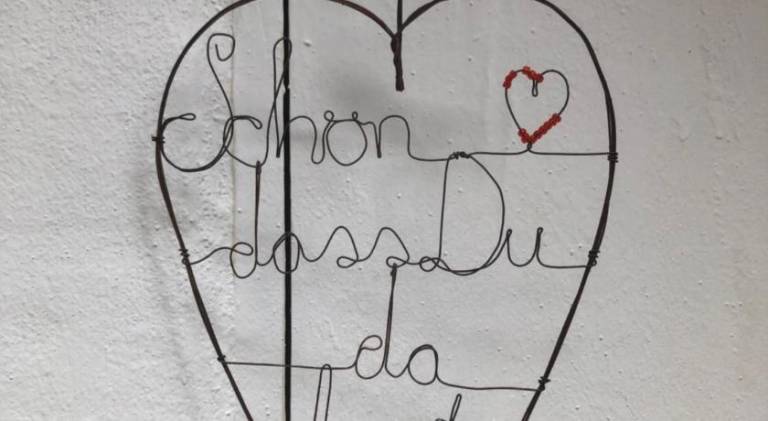 Schön
dass Du
da